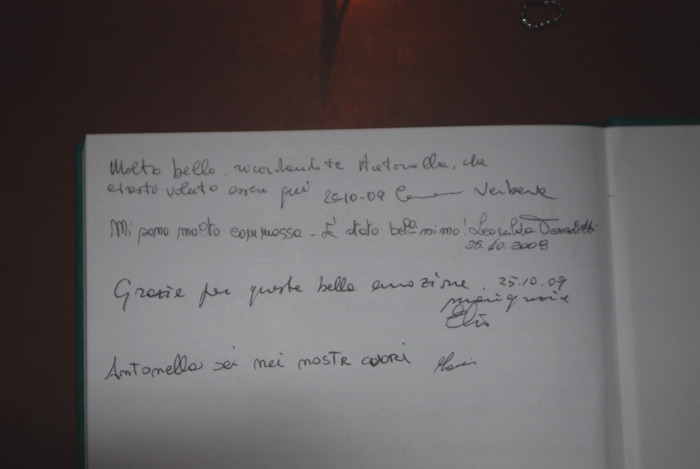 Molto bello, ricordandote Antonella, che
esserci qui 25-10-09 Verbena
Mi sono molto commossa - È stato bellissimo! Leopolda
25.10.2009
Grazie per queste belle emozione. 25.10.09
Mariagrazia
Elio
Antonella sei nei nostri cuori